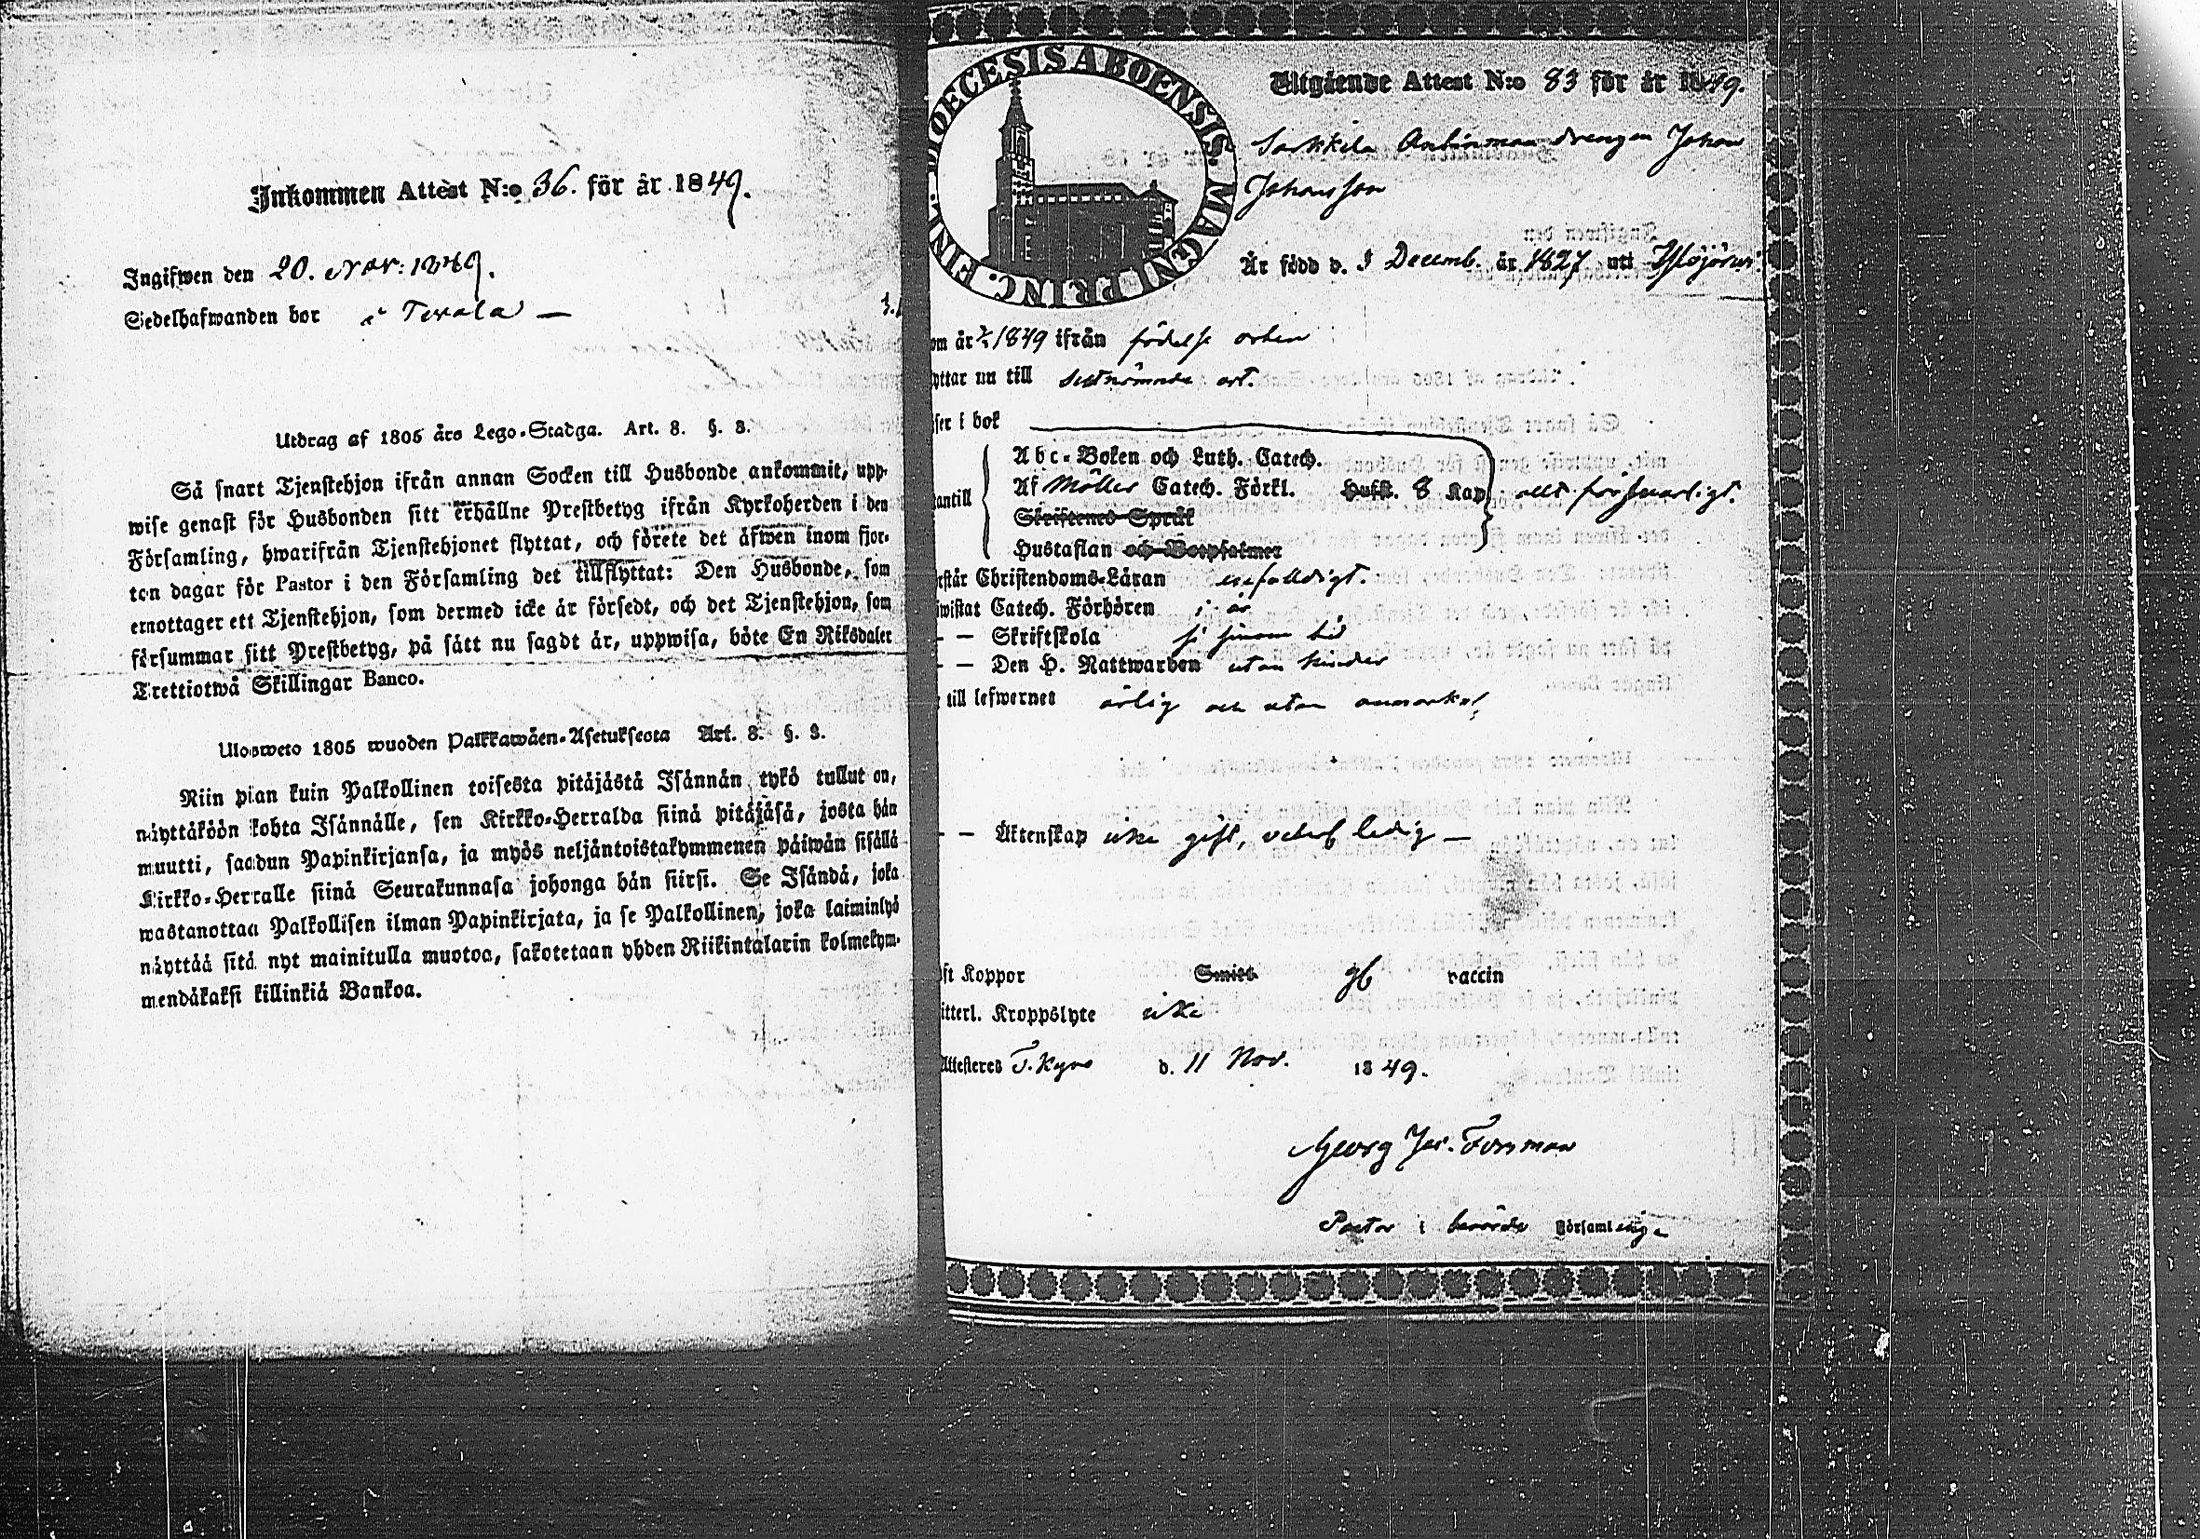 Inkommen Attest N:o 36. för år 1849.
Ingifwen den 20. Nov: 1849.
Sedelhafwanden bor i Tevala —
Utdrag af 1805 års Lego-Stadga. Art. 8. §. 3.
Så snart Tjenstehjon ifrån annan Socken till Husbonde ankommit, upp-
wise genast för Husbonden sitt erhållne Prestbetyg ifrån Kyrkoherden i den
Församling, hwarifrån Tjenstehjonet flyttat, och förete det äfwen inom fjor-
ton dagar för Pastor i den Församling det tillflyttat: Den Husbonde, som
emottager ett Tjenstehjon, som dermed icke är försedt, och det Tjenstehjon, som
försummar sitt Prestbetyg, på sätt nu sagdt är, uppwisa, böte En Riksdaler
Trettiotwå Skillingar Banco.
Ulosweto 1805 wuoden Palkkawäen-Asetuksesta Art. 8. §. 3.
Niin pian kuin Palkollinen toisesta pitäjästä Isännän tykö tullut on,
näyttäköön kohta Isännälle, sen Kirkko-Herralda siinä pitäjäsä, josta hän
muutti, saadun Papinkirjansa, ja myös neljäntoistakymmenen päiwän sisällä
Kirkko-Herralle siinä Seurakunnasa johonga hän siirsi. Se Isändä, joka
wastanottaa Palkollisen ilman Papinkirjata, ja se Palkollinen, joka laiminlyö
näyttää sitä nyt mainitulla muotoa, sakotetaan yhden Riikintalarin kolmekym-
mendäkaksi killinkiä Bankoa.
DIOECESIS ABOENSIS. MAGNI PRINC. FINL.
Utgående Attest N:o 83 för år 1849.
Sarkkila drengen Johan
Johansson
Är född d. 9 Decemb. år 1827 uti Ylöjärvi
om år 1849 ifrån födelse orten
yttar nu till sistnämnde ort.
ser i bok
Abc-Boken och Luth. Catech.
Af Möllers Catech. Förkl. Hufst. 8 Kap. allt försvarligt.
antill Skriftenes Språk
Hustaflan och Botpsalmer
rstår Christendoms-Läran enfaldigt.
iwistat Catech. Förhören i år
— — Skriftskola i sinom tid
— — Den H. Nattwarden utan hinder
till lefwernet ärlig och utan anmärkn:
— — Äktenskap icke gift, ledig —
ft Koppor Smitt gb vaccin
itterl. Kroppslyte icke
Attesteres T. Kyro d. 11 Nov. 1849.
Georg Jac. Forsman
Pastor i berörde Församling